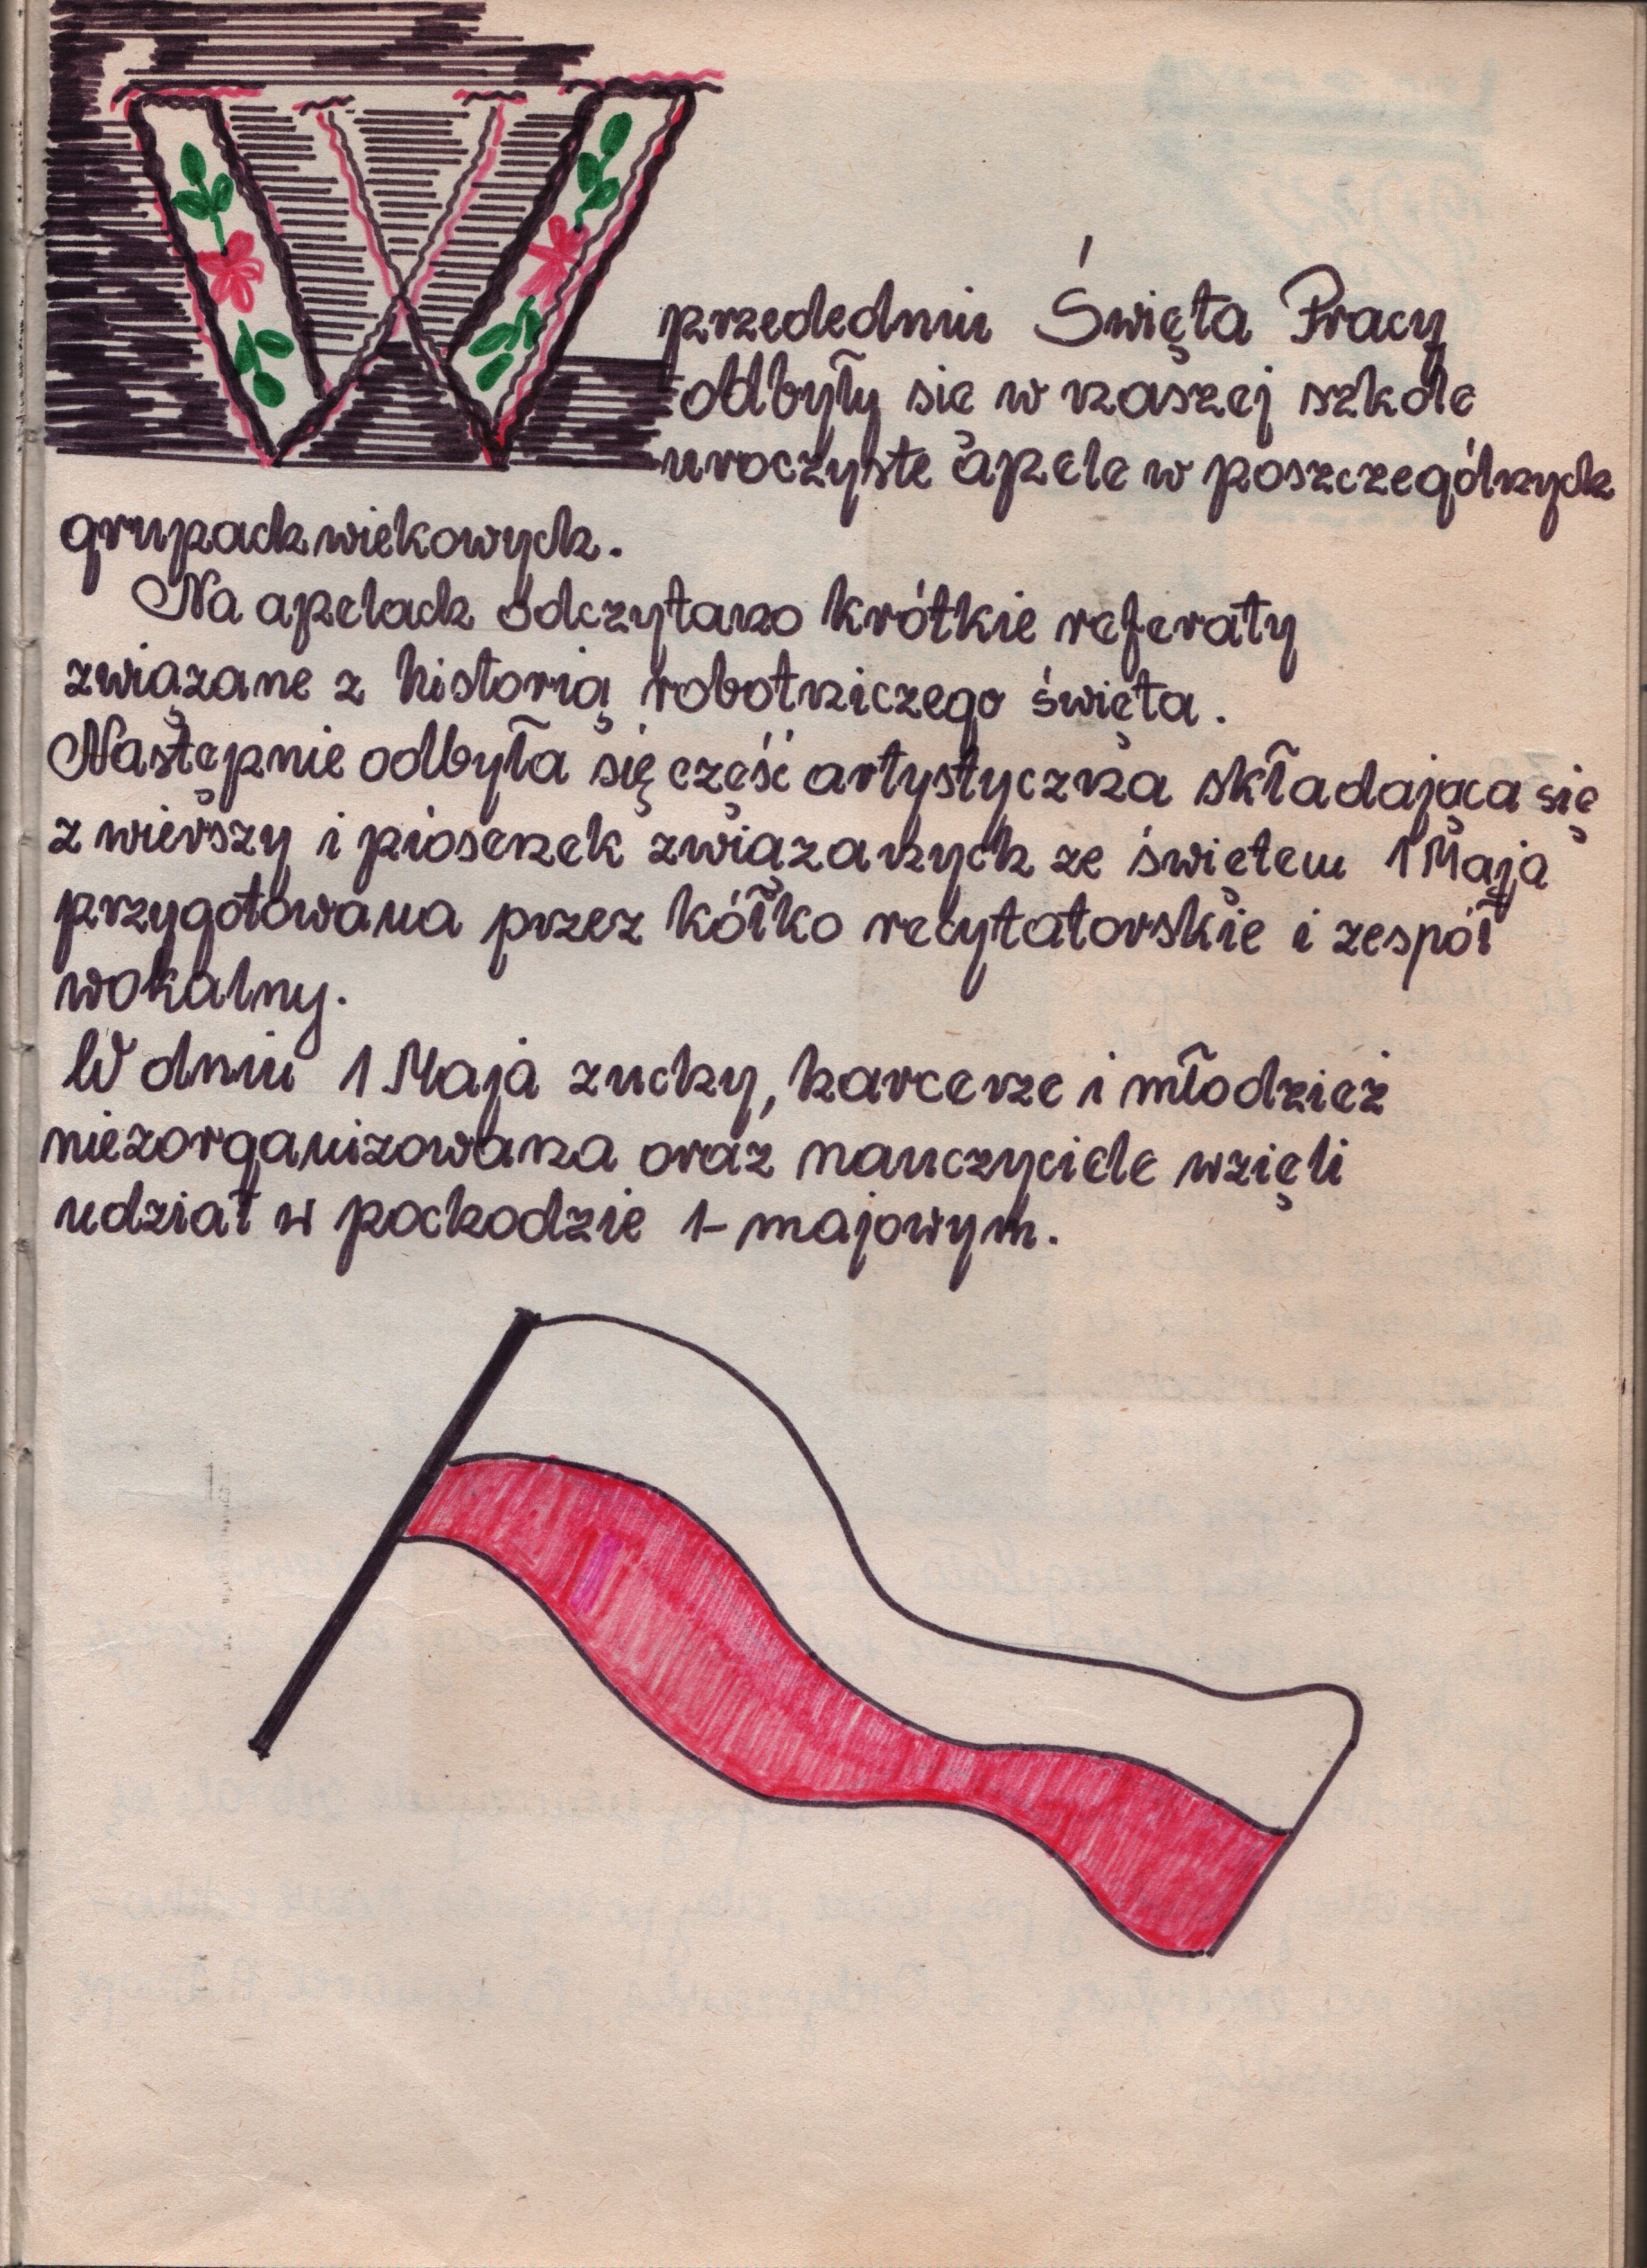 W przededniu Święta Pracy
odbyły się w naszej szkole
uroczyste apele w poszczególnych
grupach wiekowych.
Na apelach odczytano krótkie referaty
związane z historią robotniczego święta.
Następnie odbyła się część artystyczna składająca się
z wierszy i piosenek związanych ze świętem 1 Maja
przygotowana przez kółko recytatorskie i zespół
wokalny.
W dniu 1 Maja zuchy, harcerze i młodzież
niezorganizowana oraz nauczyciele wzięli
udział w pochodzie 1-majowym.